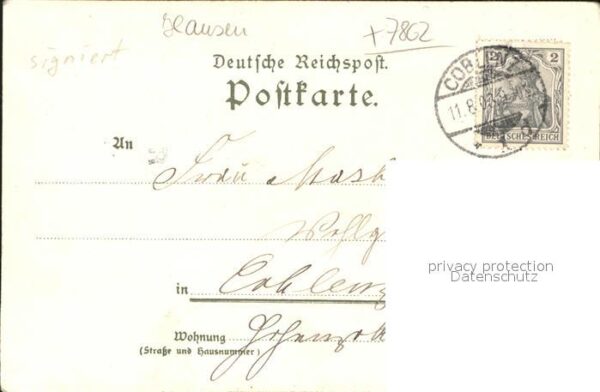 Hausen
+7862
signiert
Deutsche Reichspost.
Postkarte.
2 2
COBLENZ
11.8.02
DEUTSCHES REICH
An
Frau
Wohlg
in Coblenz
privacy protection
Datenschutz
Wohnung Hohenzoll
(Straße und Hausnummer)